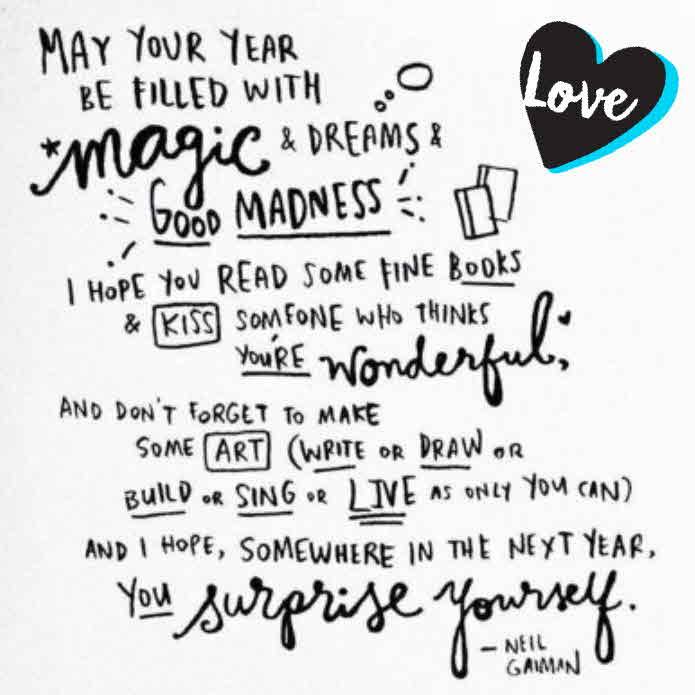 MAY YOUR YEAR
BE FILLED WITH
*magic & DREAMS &
GOOD MADNESS
I HOPE YOU READ SOME FINE BOOKS
& KISS SOMEONE WHO THINKS
YOU'RE wonderful,
AND DON'T FORGET TO MAKE
SOME ART (WRITE OR DRAW OR
BUILD OR SING OR LIVE AS ONLY YOU CAN)
AND I HOPE, SOMEWHERE IN THE NEXT YEAR,
YOU surprise yourself.
- NEIL
GAIMAN
Love